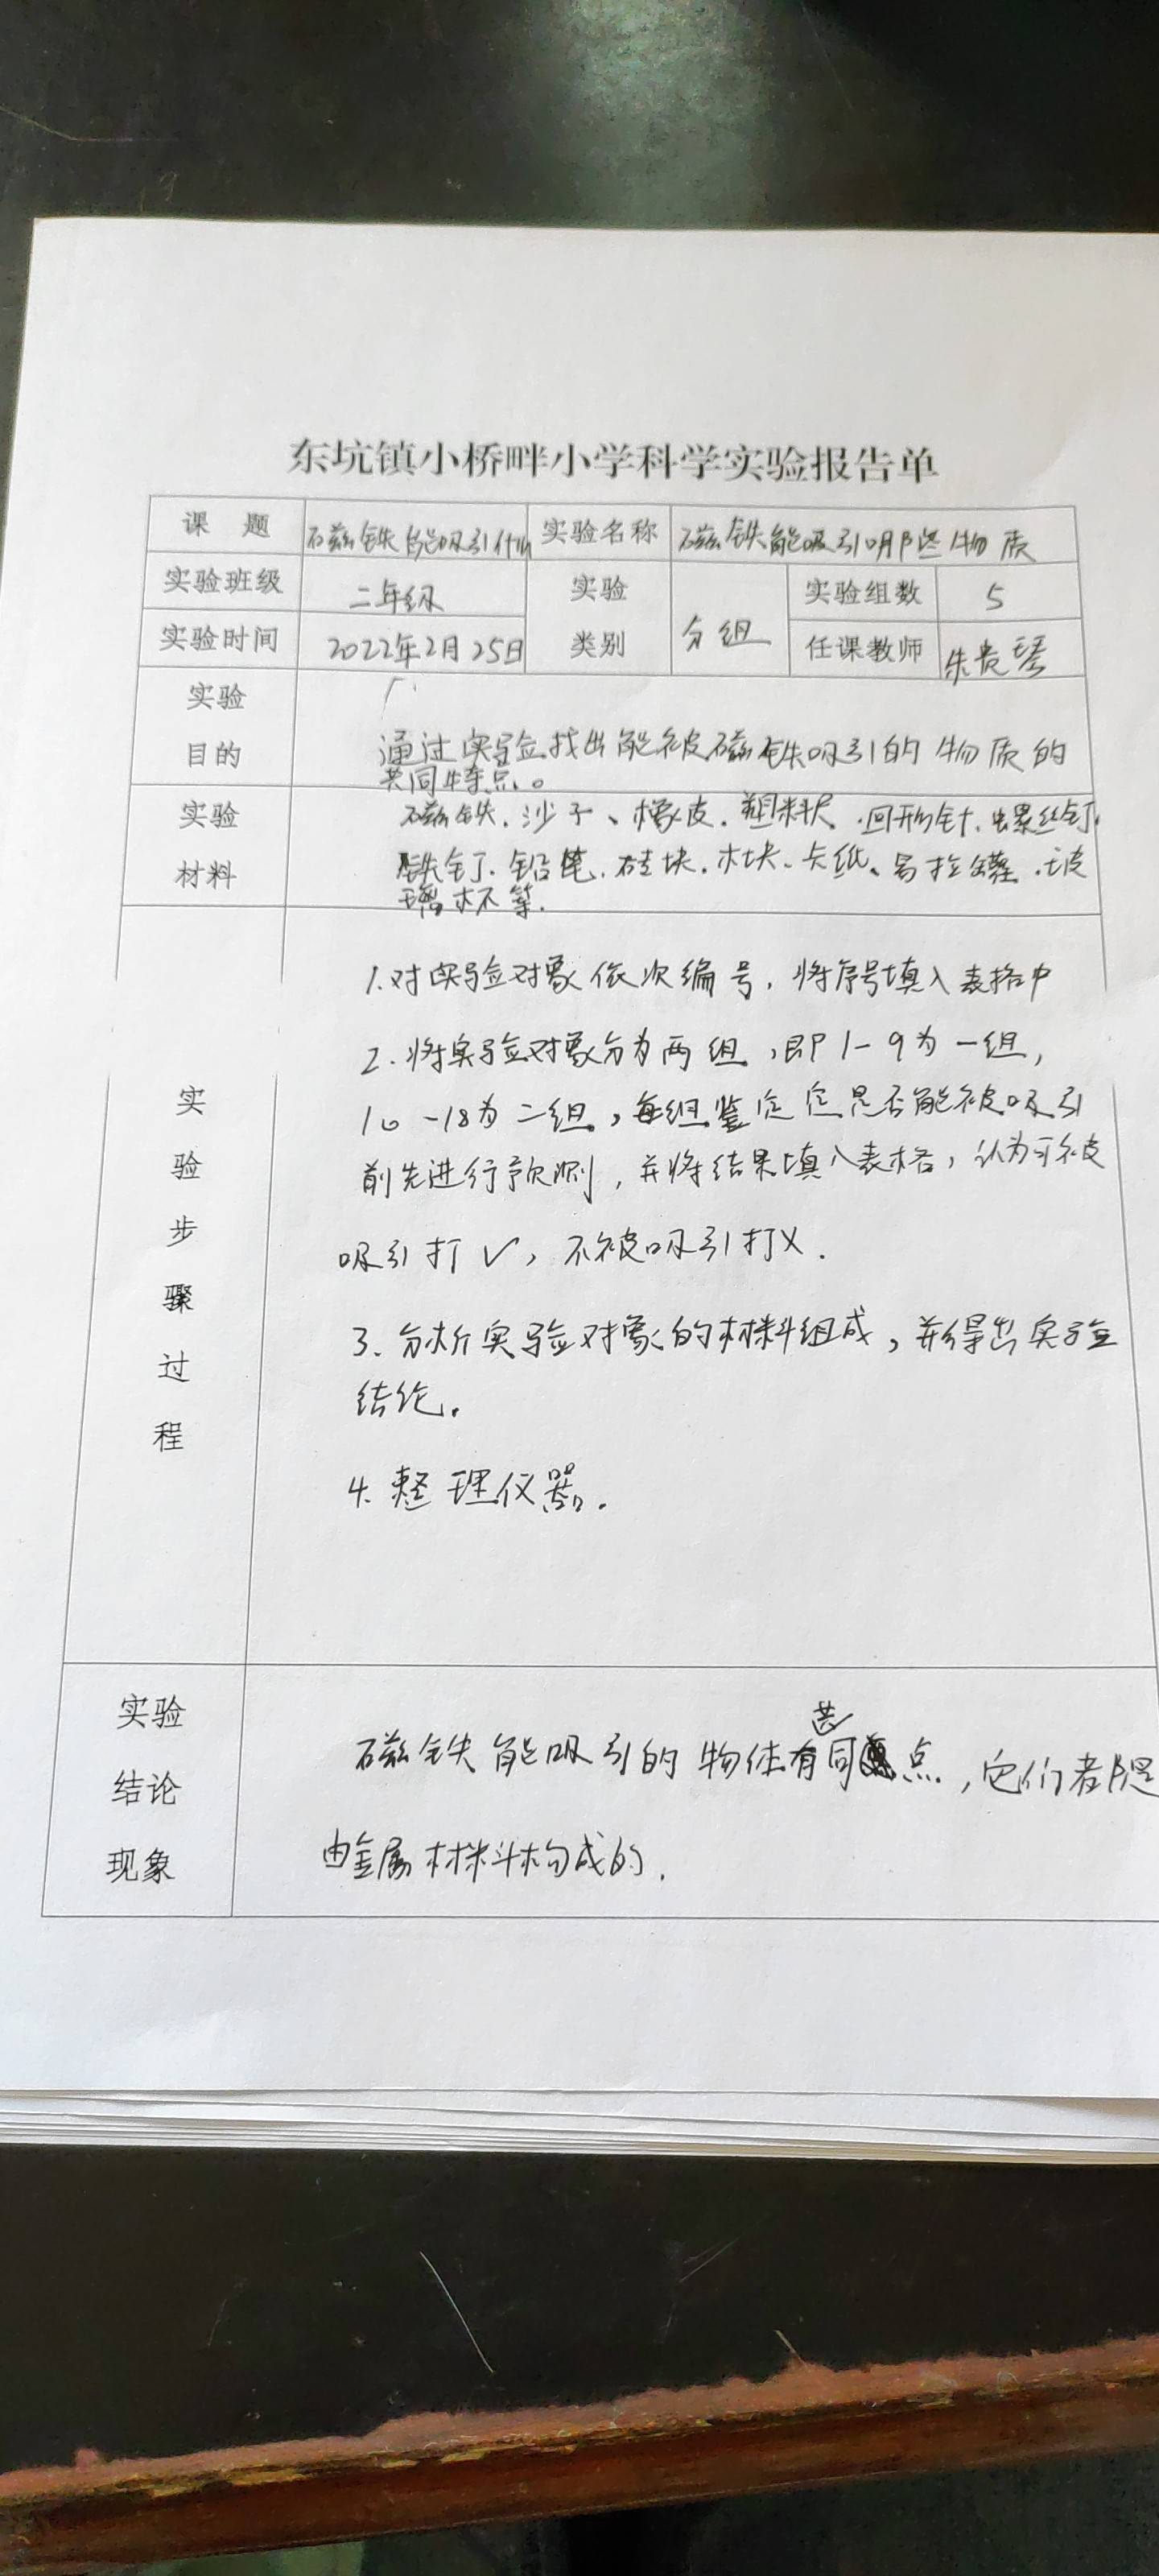 东坑镇小桥畔小学科学实验报告单
课 题 磁铁能吸引什么 实验名称 磁铁能吸引哪些物质
实验班级 二年级 实验类别 分组 实验组数 5
实验时间 2022年2月25日 任课教师 朱贵琴
实验
目的
通过实验找出能被磁铁吸引的物质的
共同特点。
实验
材料
磁铁、沙子、橡皮、塑料尺、回形针、螺丝钉、
铁钉、铅笔、砖块、木块、卡纸、易拉罐、玻
璃杯等.
实验步骤过程
1.对实验对象依次编号,将序号填入表格中
2.将实验对象分为两组,即1-9为一组,
10-18为二组,每组鉴定它是否能被吸引
前先进行预测,并将结果填入表格,认为可被
吸引打√,不被吸引打X.
3.分析实验对象的材料组成,并得出实验
结论。
4.整理仪器.
实验
结论
现象
磁铁能吸引的物体有共同点,它们都是
由金属材料构成的.